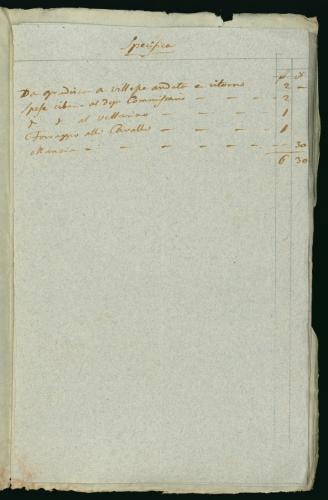 Specifica
Da Gradisca a Villesse andata e ritorno 2 –
Spese cibarie al dep. Commissario – – – 2
al vetturino – – – – 1
Foraggio alli Cavalli – – – – 1
Mancia – – – – – – – 30
6 30